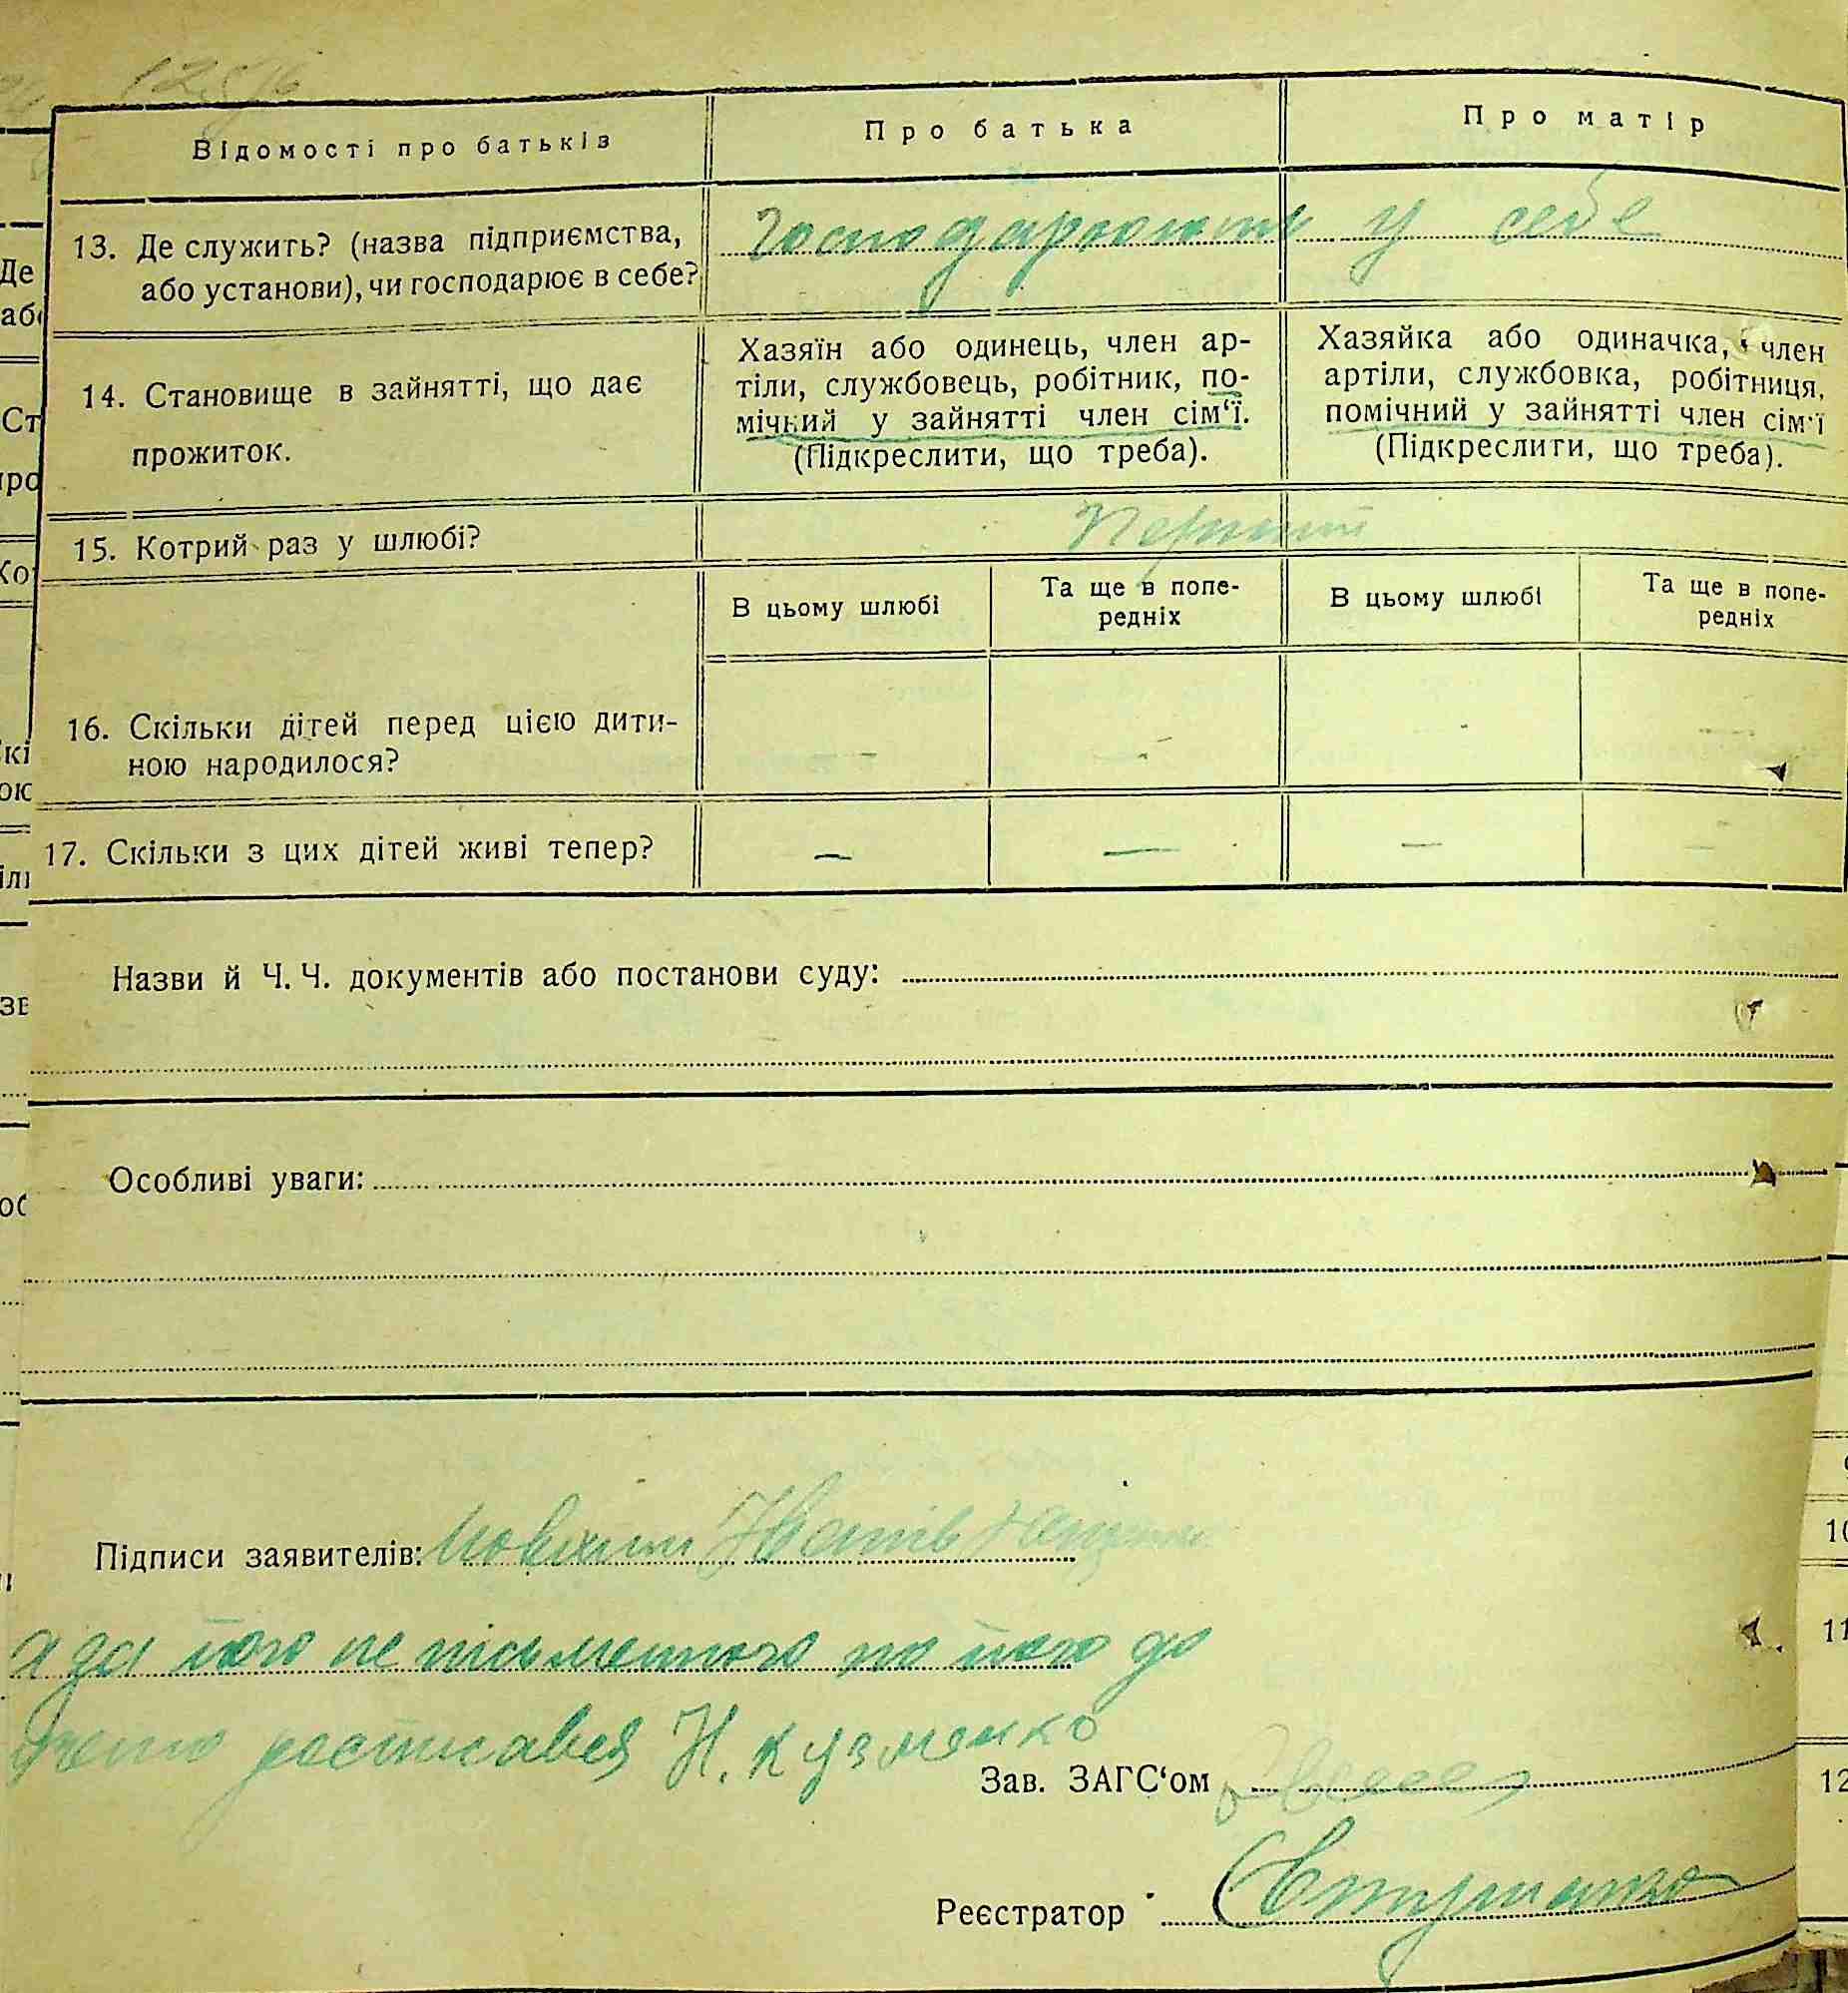 Відомості про батьків
Про батька
Про матір
13. Де служить? (назва підприємства,
або установи), чи господарює в себе?
Господарюють у себе
14. Становище в зайнятті, що дає
прожиток.
Хазяїн або одинець, член ар-
тіли, службовець, робітник, по-
мічний у зайнятті член сім‘ї.
(Підкреслити, що треба).
Хазяйка або одиначка, член
артіли, службовка, робітниця,
помічний у зайнятті член сім‘ї
(Підкреслити, що треба).
15. Котрий раз у шлюбі?
Перший
В цьому шлюбі
Та ще в попе-
редніх
В цьому шлюбі
Та ще в попе-
редніх
16. Скільки дітей перед цією дити-
ною народилося?
- - - -
17. Скільки з цих дітей живі тепер?
— — — —
Назви й Ч. Ч. документів або постанови суду:
Особливі уваги:
Підписи заявителів:
а за його не письменного по його
росписався Н. Кузменко
Зав. ЗАГС‘ом
Реєстратор
10
11
12